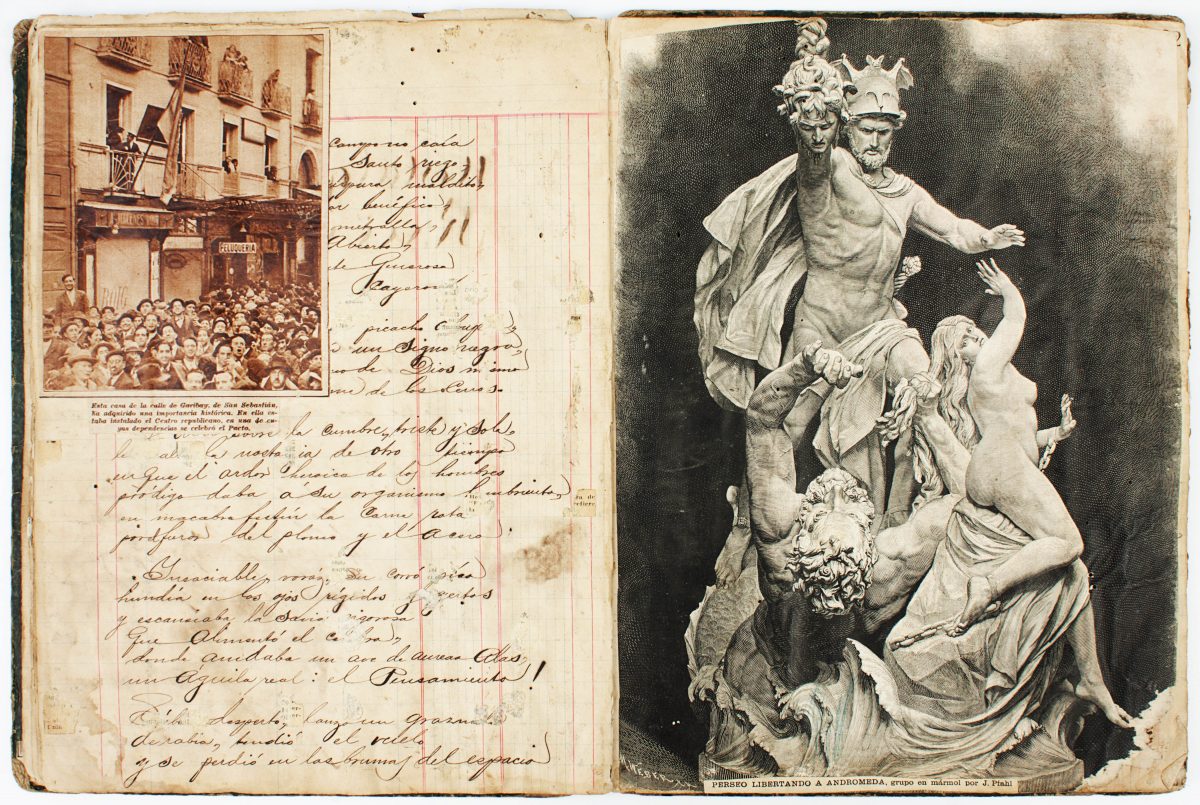 PELUQUERIA
Esta casa de la calle de Garibay, de San Sebastián,
ha adquirido una importancia histórica. En ella es-
taba instalado el Centro republicano, en una de cu-
yas dependencias se celebró el Pacto.
campo no caía
Santo riego,
maldito,
benéfico,
metralla,
Abierto,
de Generosa
Cayeron
picacho
un signo negro,
de Dios
de los
la cumbre, triste y sola,
la de otro tiempo
en que el ardor heroico de los hombres
prodigo daba a su organismo hambriento,
en macabro festín la carne rota
por el furor del plomo y el acero
Insaciable, voráz, su corvo pico
hundía en los ojos rigidos y yertos
y escanciaba la savia vigorosa
que Alimentó el
donde anidaba un ave de aureas Alas,
un Águila real: el Pensamiento!
desperto, lanzó un graznido
de rabia, tendió el vuelo
y se perdió en las brumas del espacio
PERSEO LIBERTANDO A ANDROMEDA, grupo en mármol por J. Pfahl